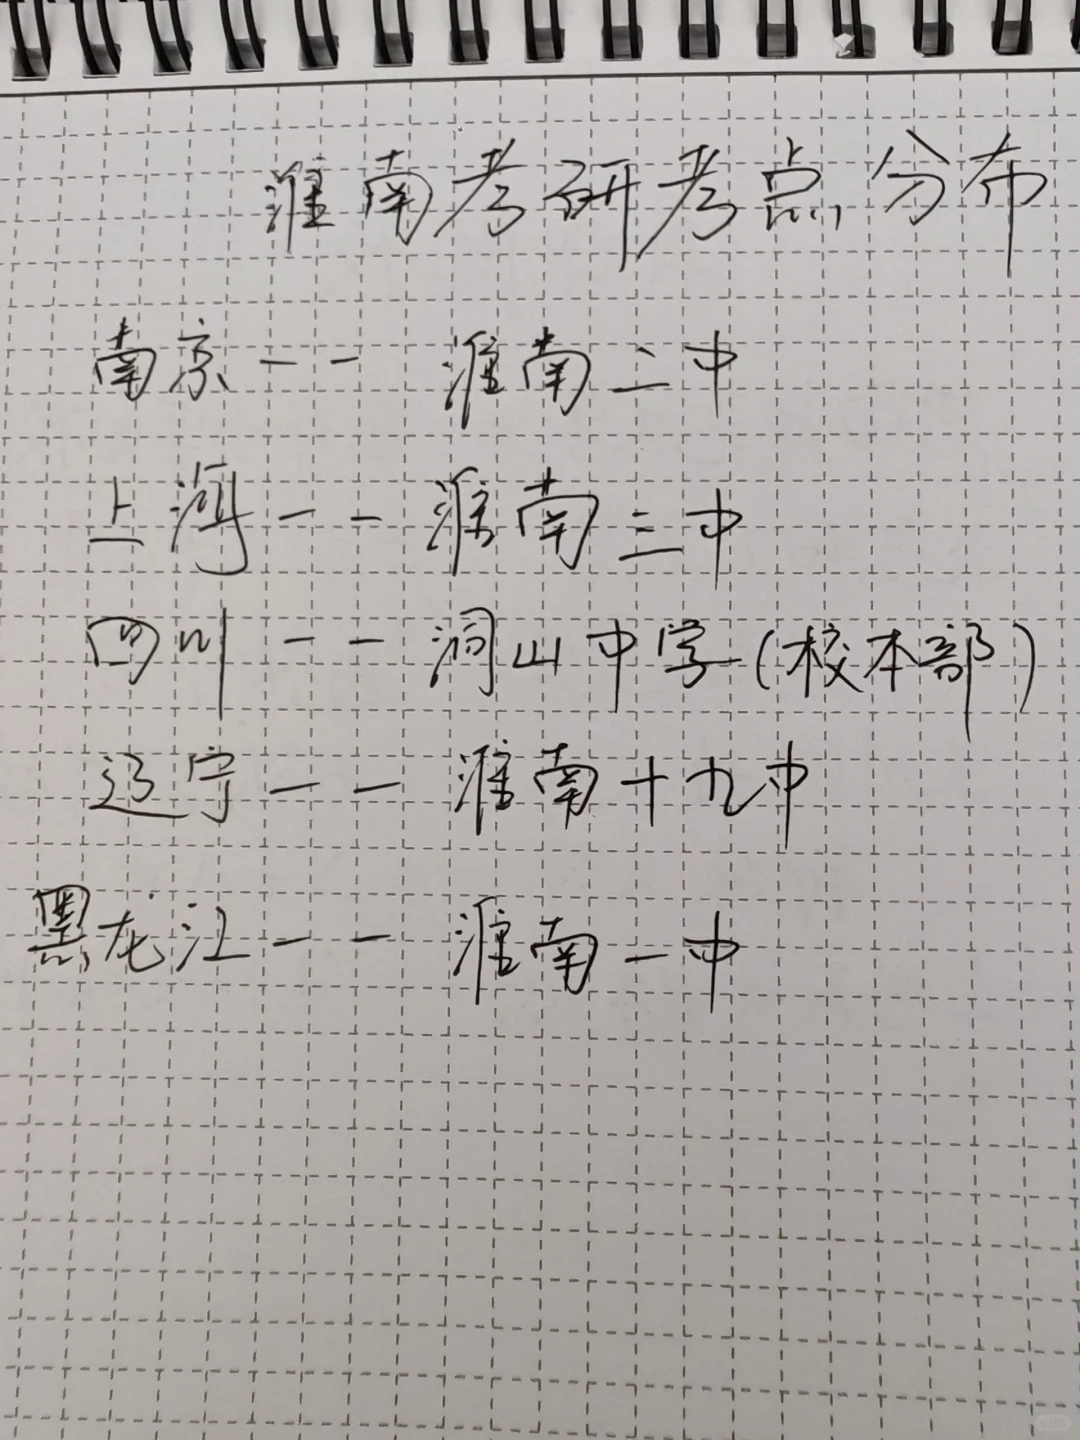 淮南考研考点分布
南京——淮南二中
上海——淮南三中
四川——洞山中学(校本部)
辽宁——淮南十九中
黑龙江——淮南一中